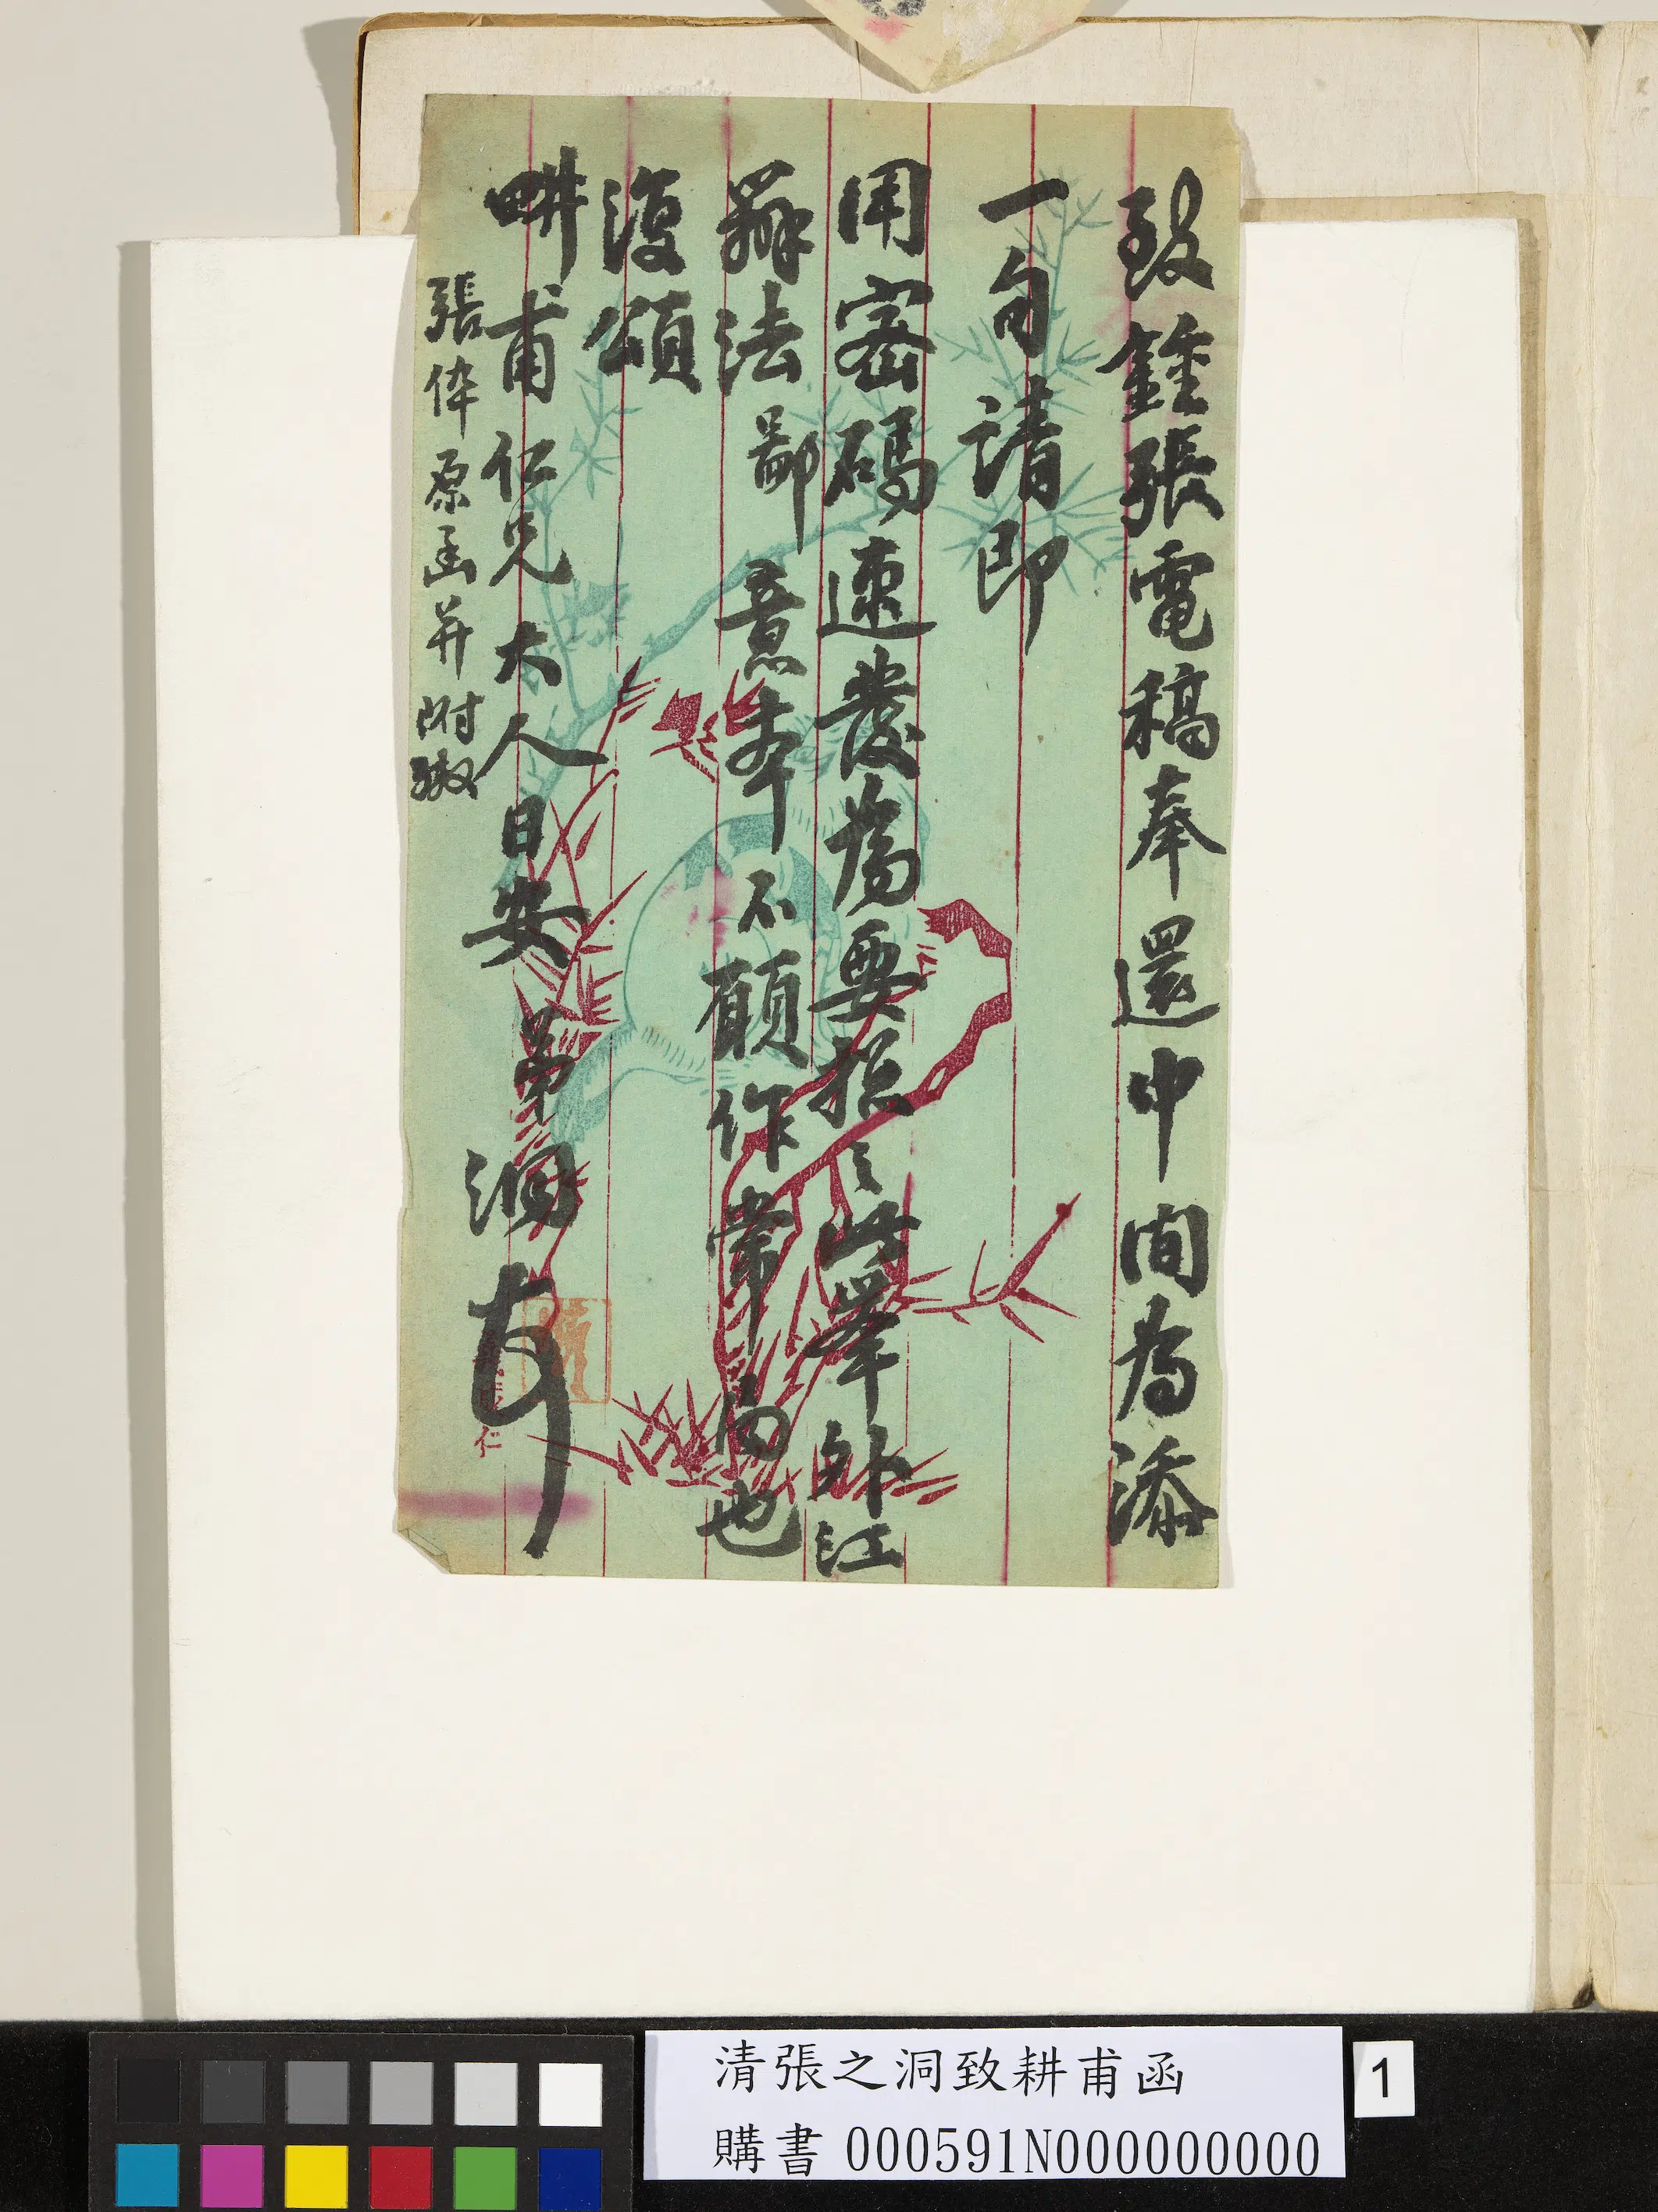 致鍾張電稿奉還中間為添
一句請即
用密碼速發為要控之此舉外江
辦法鄙意本不願作常局也
復頌
畊甫仁兄大人日安 弟洞
張倅原函并附繳
仁
清張之洞致耕甫函
購書 000591N000000000
1